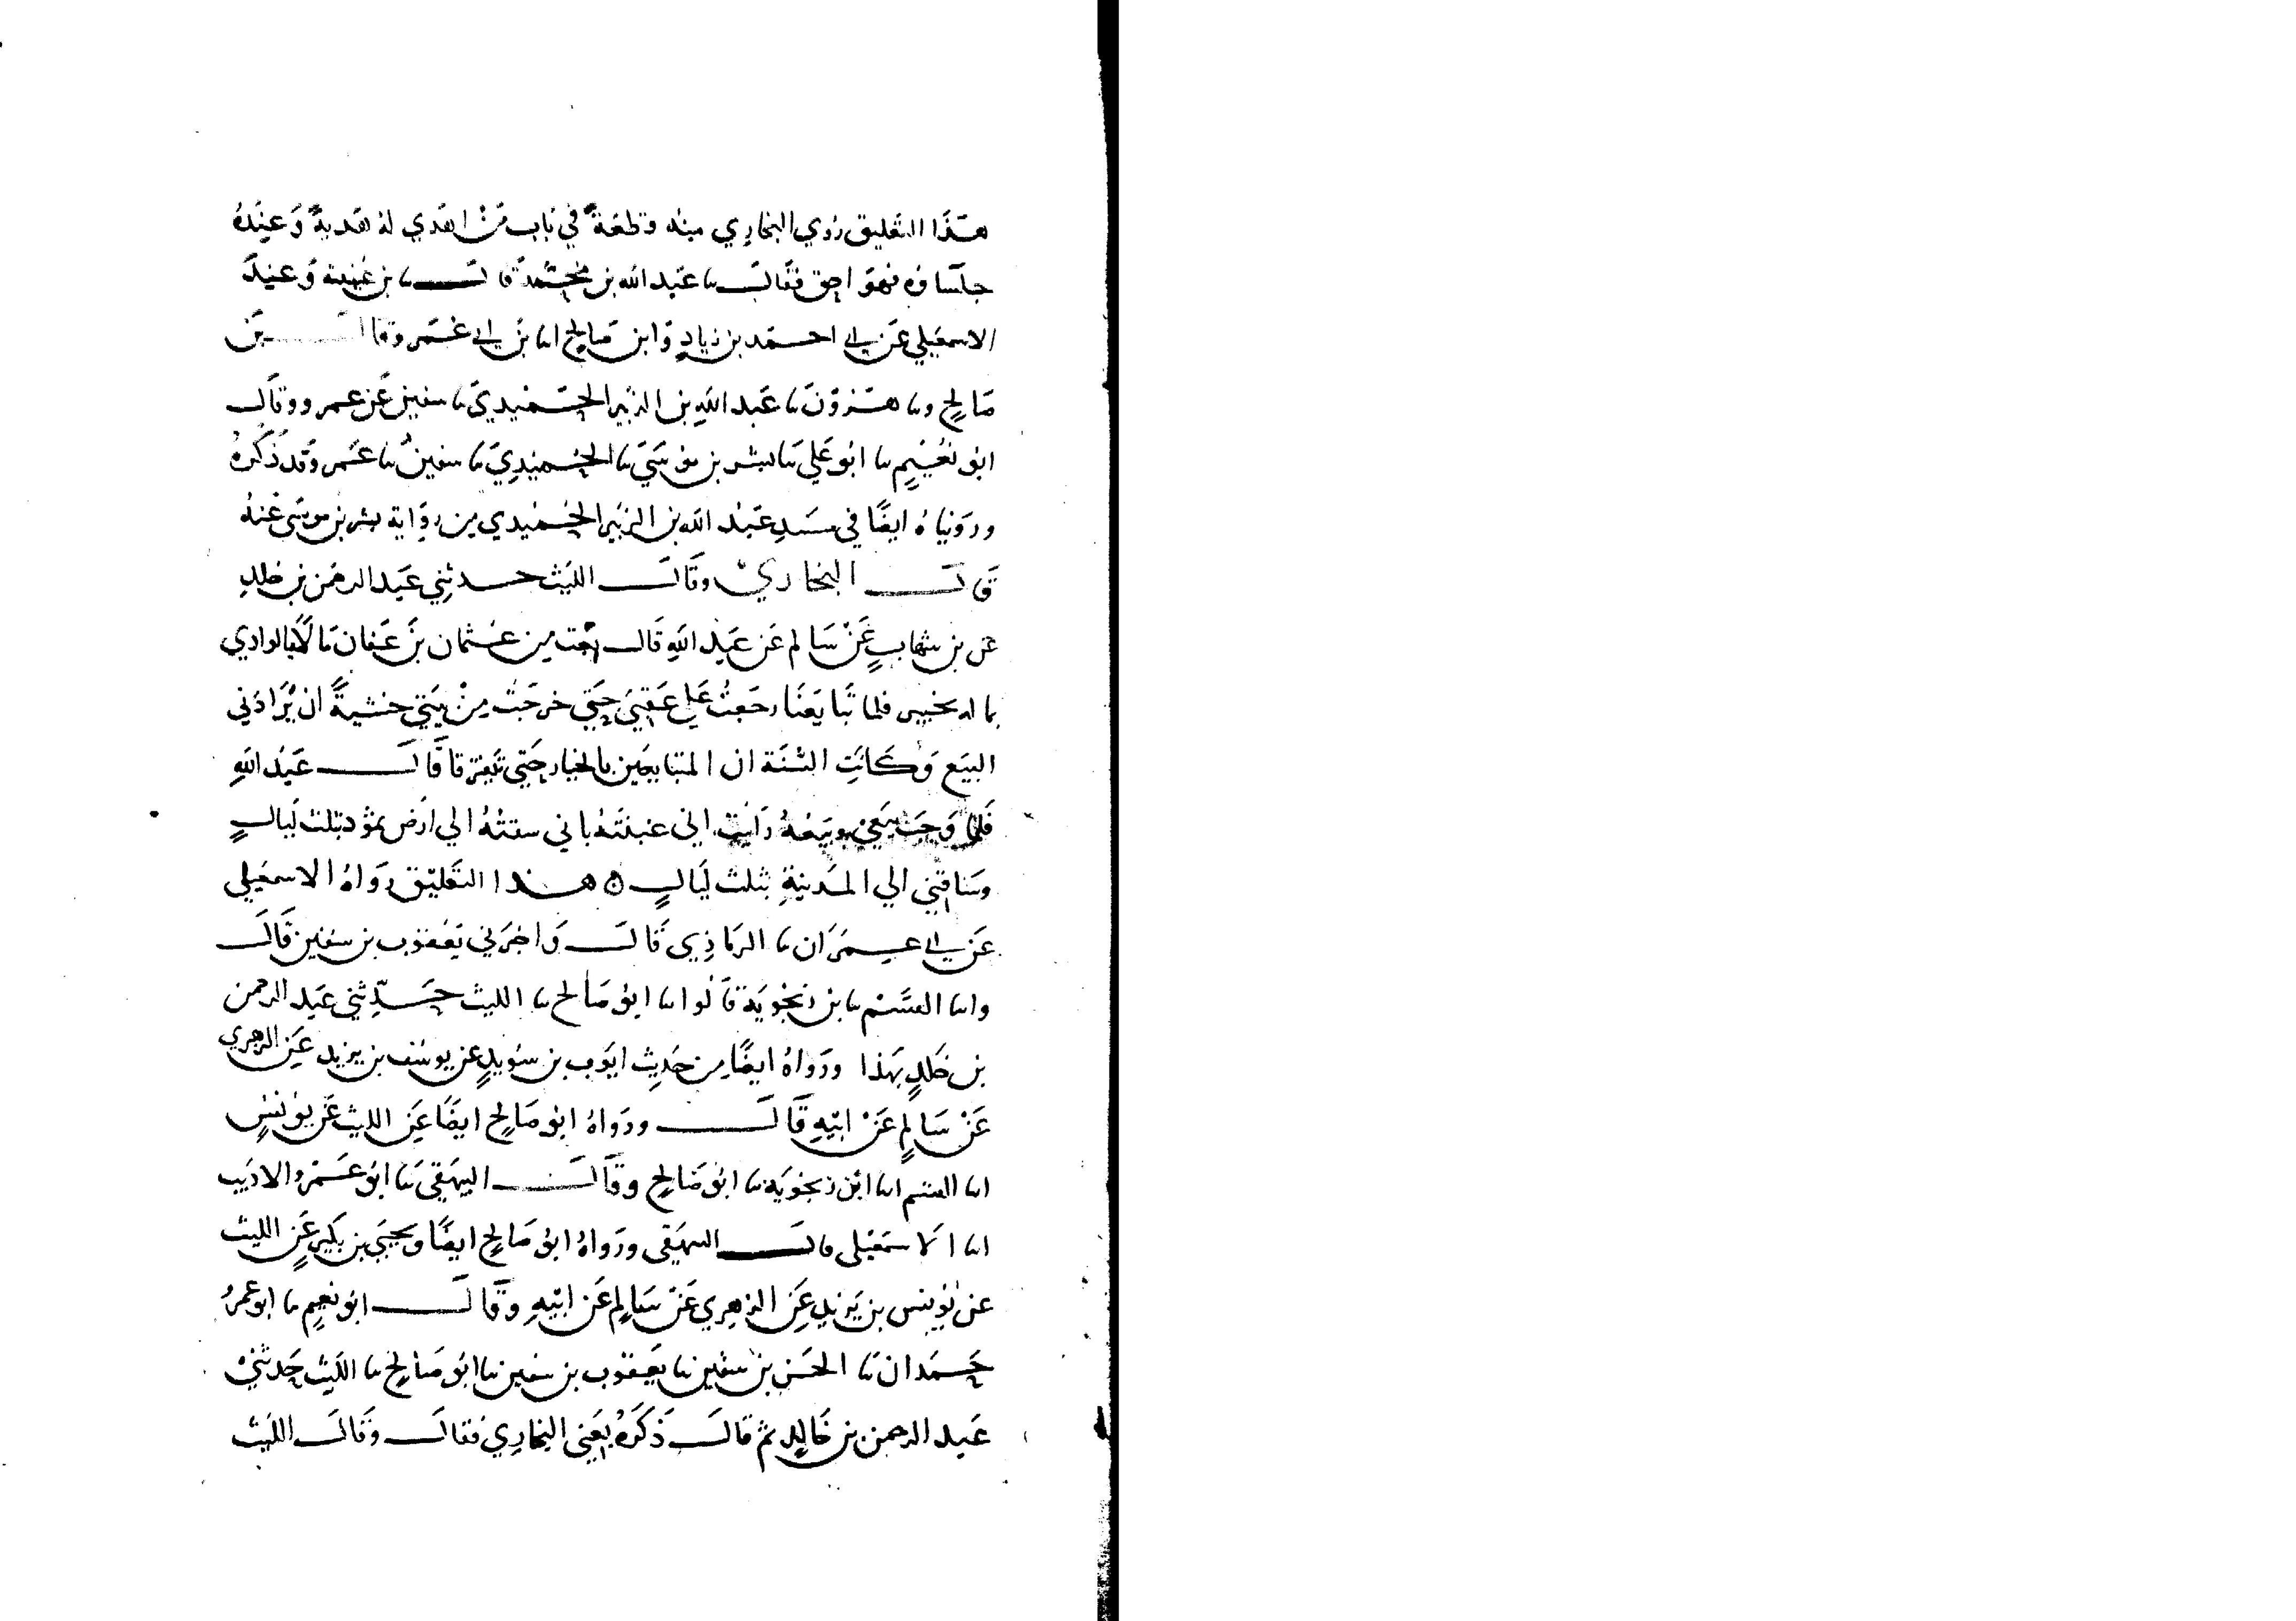 هذا التعليق روي البخاري منه وقطعة في باب من اهدي له هدية وعنده
جلساوه فهو احق فقال ثنا عبد الله بن محمد قال ثنا بن عيينة وعند
الاسمعيلي عن ابي احمد بن زياد وابن صالح انا بن ابي عمر وقال بن
صالح وثنا هرون ثنا عبد الله بن الزبير الحميدي ثنا سفين عن عمرو وقال
ابو نعيم ثنا ابو علي ثنا بشر بن موسي ثنا الحميدي ثنا سفين ثنا عمر وقد ذكره
ورويناه ايضا في مسند عبد الله بن الزبير الحميدي من رواية بشر بن موسي عنه
قال البخاري وقال الليث حدثني عبد الرحمن بن خلد
عن بن شهاب عن سالم عن عبد الله قال بعت من عثمان بن عفان مالا بالوادي
بماله بخيبر فلما تبايعنا رجعت علي عقبي حتي خرجت من بيتي خشية ان يرادني
البيع وكانت السنة ان المتبايعين بالخيار حتي يتفرقا قال عبد الله
فلما وجب بيعي وبيعه رايت اني غبنته باني سقته الي ارض ثمود بثلث ليال
وساقني الي المدينة بثلث ليال ه هذا التعليق رواه الاسمعيلي
عن ابي عمران ثنا الرمادي قال واخبرني يعقوب بن سفين قال
وانا القسم ثنا بن زنجويه قالوا انا ابو صالح ثنا الليث حدثني عبد الرحمن
بن خلد بهذا ورواه ايضا من حديث ايوب بن سويد عن يوسف بن يزيد عن الزهري
عن سالم عن ابيه قال ورواه ابو صالح ايضا عن الليث عن يونس
انا القسم انا ابن زنجويه ثنا ابو صالح وقال البيهقي ثنا ابو عمرو الاديب
انا الاسمعيلي قال البيهقي ورواه ابو صالح ايضا ويحيي بن بكير عن الليث
عن يونس بن يزيد عن الزهري عن سالم عن ابيه وقال ابو نعيم ثنا ابو عمرو
حمدان ثنا الحسن بن سفين ثنا يعقوب بن سفين ثنا ابو صالح ثنا الليث حدثني
عبد الرحمن بن خالد ثم قال ذكره يعني البخاري فقال وقال الليث